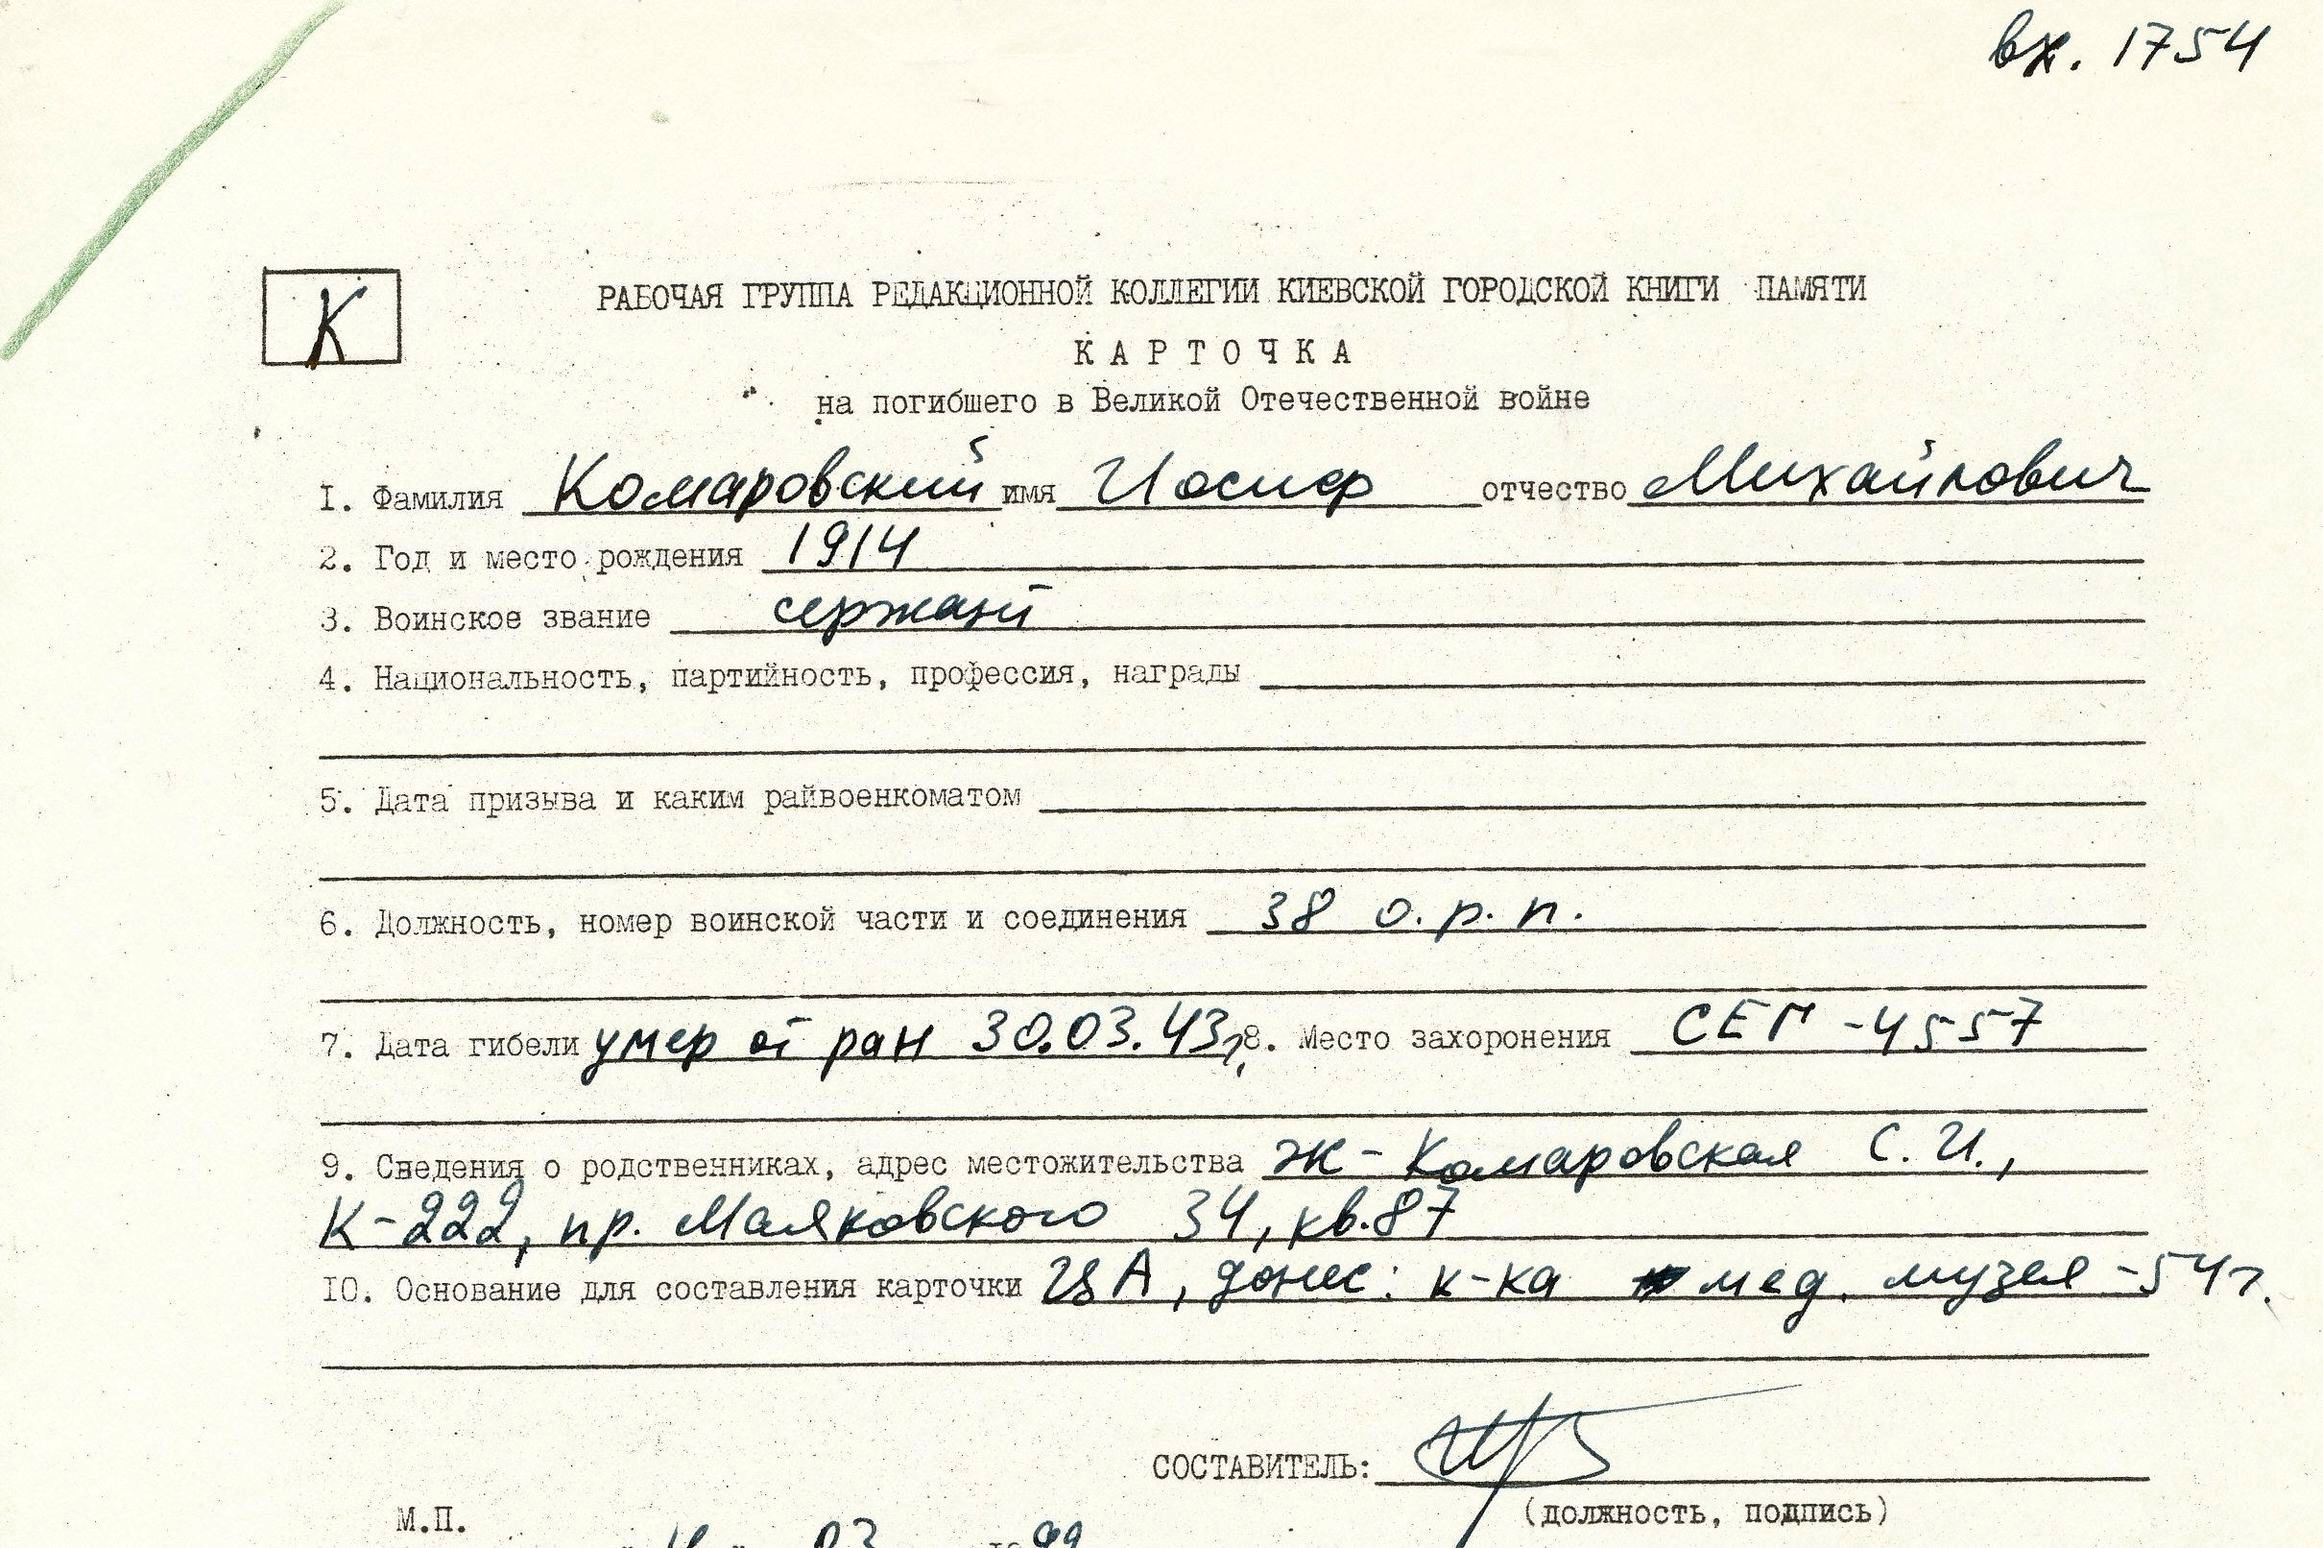 вх. 1754
К
РАБОЧАЯ ГРУППА РЕДАКЦИОННОЙ КОЛЛЕГИИ КИЕВСКОЙ ГОРОДСКОЙ КНИГИ ПАМЯТИ
КАРТОЧКА
на погибшего в Великой Отечественной войне
I. Фамилия Комаровский имя Иосиф отчество Михайлович
2. Год и место рождения 1914
3. Воинское звание сержант
4. Национальность, партийность, профессия, награды
5. Дата призыва и каким райвоенкоматом
6. Должность, номер воинской части и соединения 38 о.р.п.
7. Дата гибели умер от ран 30.03.43г, 8. Место захоронения СЕГ-4557
9. Сведения о родственниках, адрес местожительства ж-Комаровская С.И.,
К-222, пр. Маяковского 34, кв.87
I0. Основание для составления карточки ЦА, донес: к-ка мед. музея -54г.
СОСТАВИТЕЛЬ:
(должность, подпись)
М.П.
03 1999